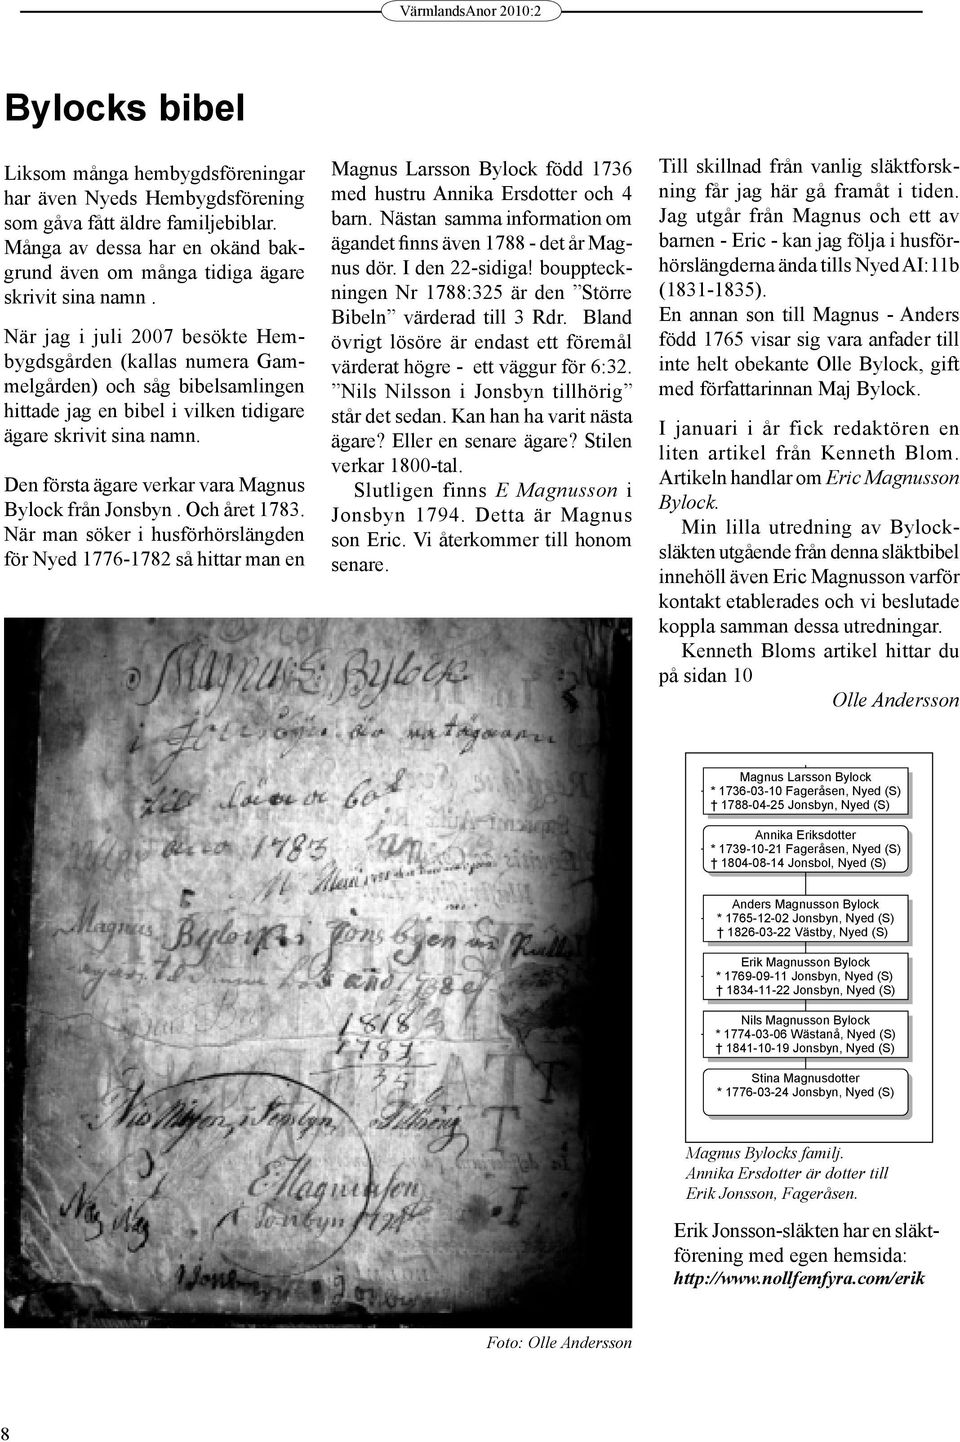 VärmlandsAnor 2010:2
Bylocks bibel
Liksom många hembygdsföreningar
har även Nyeds Hembygdsförening
som gåva fått äldre familjebiblar.
Många av dessa har en okänd bak-
grund även om många tidiga ägare
skrivit sina namn .
När jag i juli 2007 besökte Hem-
bygdsgården (kallas numera Gam-
melgården) och såg bibelsamlingen
hittade jag en bibel i vilken tidigare
ägare skrivit sina namn.
Den första ägare verkar vara Magnus
Bylock från Jonsbyn . Och året 1783.
När man söker i husförhörslängden
för Nyed 1776-1782 så hittar man en
Magnus Larsson Bylock född 1736
med hustru Annika Ersdotter och 4
barn. Nästan samma information om
ägandet finns även 1788 - det år Mag-
nus dör. I den 22-sidiga! bouppteck-
ningen Nr 1788:325 är den ”Större
Bibeln” värderad till 3 Rdr. Bland
övrigt lösöre är endast ett föremål
värderat högre - ett väggur för 6:32.
”Nils Nilsson i Jonsbyn tillhörig”
står det sedan. Kan han ha varit nästa
ägare? Eller en senare ägare? Stilen
verkar 1800-tal.
Slutligen finns E Magnusson i
Jonsbyn 1794. Detta är Magnus
son Eric. Vi återkommer till honom
senare.
Till skillnad från vanlig släktforsk-
ning får jag här gå framåt i tiden.
Jag utgår från Magnus och ett av
barnen - Eric - kan jag följa i husför-
hörslängderna ända tills Nyed AI:11b
(1831-1835).
En annan son till Magnus - Anders
född 1765 visar sig vara anfader till
inte helt obekante Olle Bylock, gift
med författarinnan Maj Bylock.
I januari i år fick redaktören en
liten artikel från Kenneth Blom.
Artikeln handlar om Eric Magnusson
Bylock.
Min lilla utredning av Bylock-
släkten utgående från denna släktbibel
innehöll även Eric Magnusson varför
kontakt etablerades och vi beslutade
koppla samman dessa utredningar.
Kenneth Bloms artikel hittar du
på sidan 10
Olle Andersson
Magnus L Bylock
i
till
1783
Bylock i Jonsbyn
1788
1818
1783
35
Nils Nilsson i Jonsbyn Tillhörig
E Magnusson
Jonsbyn 1794
Magnus Larsson Bylock
* 1736-03-10 Fageråsen, Nyed (S)
† 1788-04-25 Jonsbyn, Nyed (S)
Annika Eriksdotter
* 1739-10-21 Fageråsen, Nyed (S)
† 1804-08-14 Jonsbol, Nyed (S)
Anders Magnusson Bylock
* 1765-12-02 Jonsbyn, Nyed (S)
† 1826-03-22 Västby, Nyed (S)
Erik Magnusson Bylock
* 1769-09-11 Jonsbyn, Nyed (S)
† 1834-11-22 Jonsbyn, Nyed (S)
Nils Magnusson Bylock
* 1774-03-06 Wästanå, Nyed (S)
† 1841-10-19 Jonsbyn, Nyed (S)
Stina Magnusdotter
* 1776-03-24 Jonsbyn, Nyed (S)
Magnus Bylocks familj.
Annika Ersdotter är dotter till
Erik Jonsson, Fageråsen.
Erik Jonsson-släkten har en släkt-
förening med egen hemsida:
http://www.nollfemfyra.com/erik
Foto: Olle Andersson
8